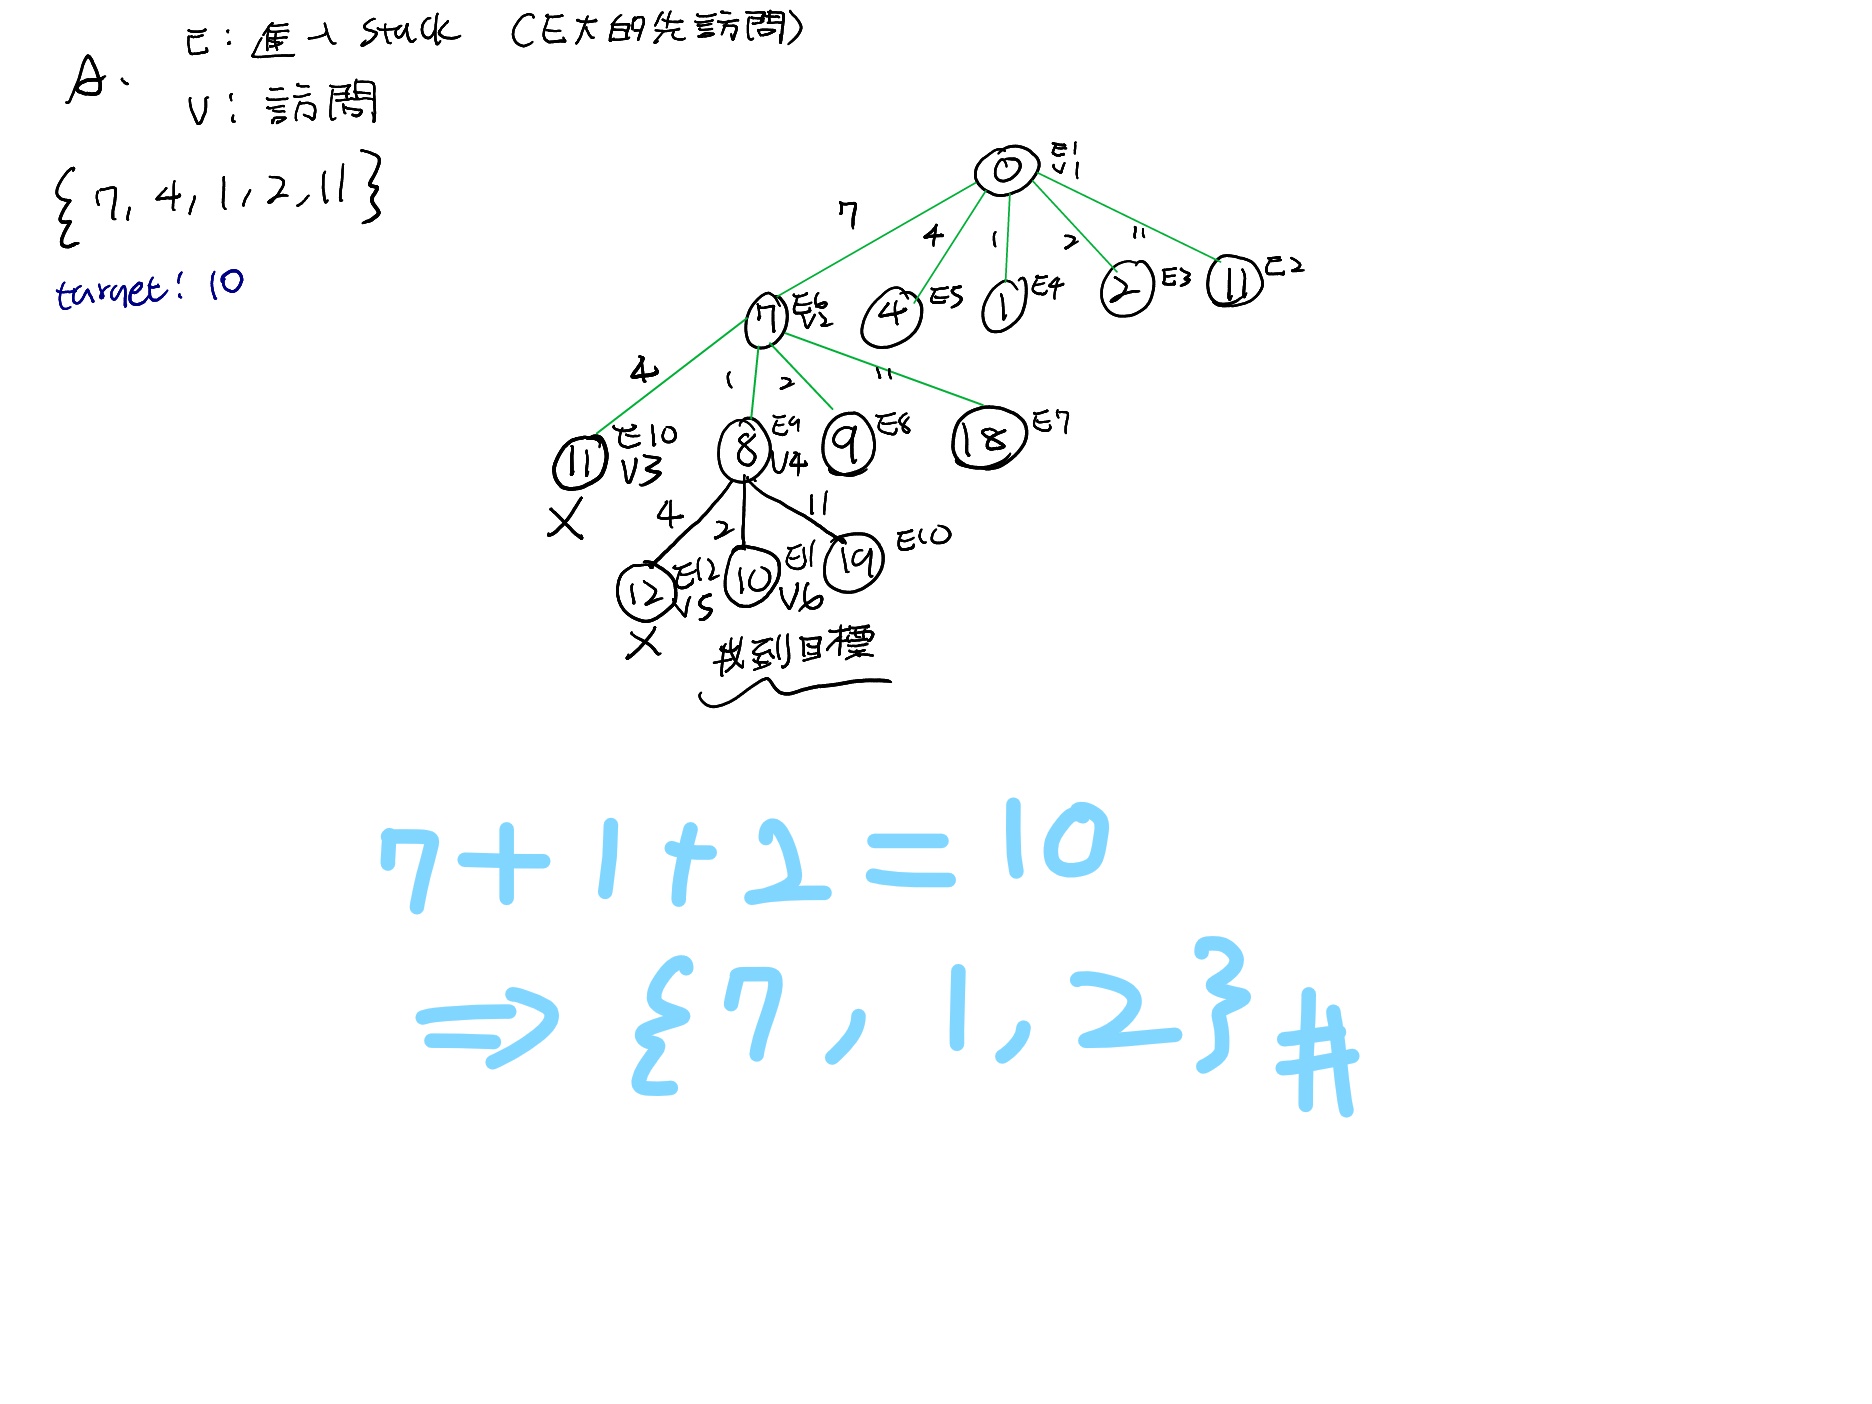 A、
E：進入 stack （E大的先訪問）
V：訪問
{7, 4, 1, 2, 11}
target: 10
0 E1 V1
7 4 1 2 11
7 E6 V2
4 E5
1 E4
2 E3
11 E2
4 1 2 11
11 E10 V3
X
8 E9 V4
9 E8
18 E7
4 2 11
12 E12 V5
X
10 E11 V6
19 E10
找到目標
7+1+2=10
⇒ {7, 1, 2} #